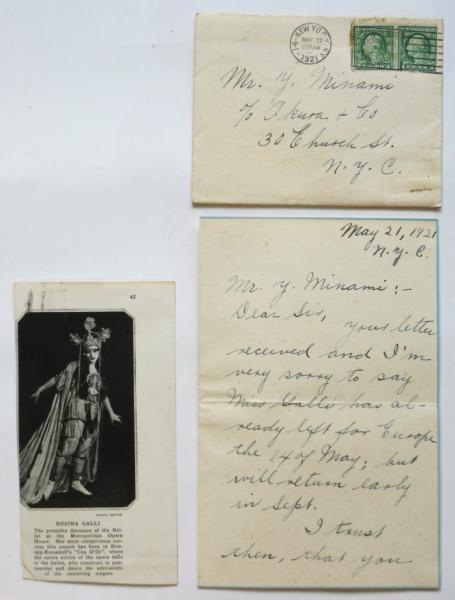 NEW YORK, N.Y.
MAY 22
1921
Mr. Y. Minami
c/o Okura & Co
30 Church St.
N.Y.C.
May 21, 1921
N.Y.C.
Mr. Y. Minami:-
Dear Sir, your letter
received and I'm
very sorry to say
Miss Galli has al-
ready left for Europe
the 14 of May; but
will return early
in Sept.
I trust
then, that you
45
ROSINA GALLI
The première danseuse of the Bal-
let at the Metropolitan Opera
House. Her most conspicuous suc-
cess this season has been in Rim-
sky-Korsakoff's "Coq D'Or", where
the entire action of the opera falls
to the ballet, who construct in pan-
tomime and dance the sentiments
of the unmoving singers